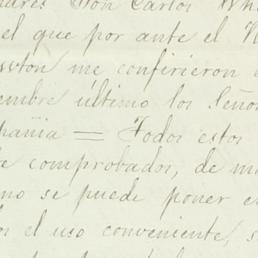 Don Carlos
el que por ante el
me confirieron
último los Señor
pañia = Todos estos
comprobador, de
no se puede poner
el uso conveniente,